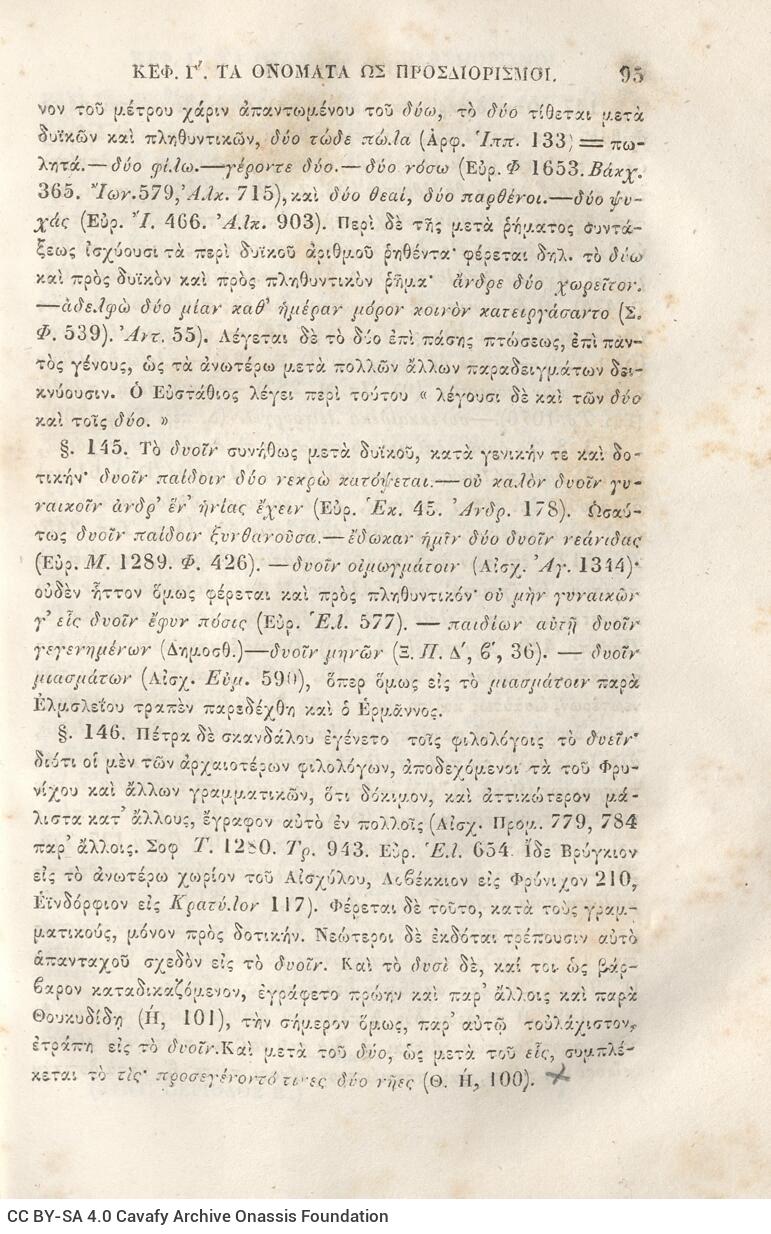 ΚΕΦ. Γ′. ΤΑ ΟΝΟΜΑΤΑ ΩΣ ΠΡΟΣΔΙΟΡΙΣΜΟΙ. 95
νον τοῦ μέτρου χάριν ἀπαντωμένου τοῦ δύω, τὸ δύο τίθεται μετὰ
δυϊκῶν καὶ πληθυντικῶν, δύο τώδε πώλα (Ἀρφ. Ἱππ. 133) = πω-
λητά.— δύο φίλω.—γέροντε δύο.— δύο νόσω (Εὐρ. Φ 1653. Βάκχ.
365. Ἴων. 579, Ἀλκ. 715), καὶ δύο θεαί, δύο παρθένοι.—δύο ψυ-
χάς (Εὐρ. Ἱ. 466. Ἀλκ. 903). Περὶ δὲ τῆς μετὰ ῥήματος συντά-
ξεως ἰσχύουσι τὰ περὶ δυϊκοῦ ἀριθμοῦ ῥηθέντα· φέρεται δηλ. τὸ δύω
καὶ πρὸς δυϊκὸν καὶ πρὸς πληθυντικὸν ῥῆμα· ἄνδρε δύο χωρεῖτον.
—ἀδελφὼ δύο μίαν καθ' ἡμέραν μόρον κοινὸν κατειργάσαντο (Σ.
Φ. 539). Ἀντ. 55). Λέγεται δὲ τὸ δύο ἐπὶ πάσης πτώσεως, ἐπὶ παν-
τὸς γένους, ὡς τὰ ἀνωτέρω μετὰ πολλῶν ἄλλων παραδειγμάτων δει-
κνύουσιν. Ὁ Εὐστάθιος λέγει περὶ τούτου « λέγουσι δὲ καὶ τῶν δύο
καὶ τοῖς δύο. »
§. 145. Τὸ δυοῖν συνήθως μετὰ δυϊκοῦ, κατὰ γενικήν τε καὶ δο-
τικήν· δυοῖν παίδοιν δύο νεκρὼ κατόψεται.—οὐ καλὸν δυοῖν γυ-
ναικοῖν ἄνδρ' ἕν' ἡνίας ἔχειν (Εὐρ. Ἑκ. 45. Ἀνδρ. 178). Ὡσαύ-
τως δυοῖν παίδοιν ξυνθανοῦσα.—ἔδωκαν ἡμῖν δύο δυοῖν νεάνιδας
(Εὐρ. Μ. 1289. Φ. 426). —δυοῖν οἰμωγμάτοιν (Αἰσχ. Ἀγ. 1344)·
οὐδὲν ἧττον ὅμως φέρεται καὶ πρὸς πληθυντικόν· οὐ μὴν γυναικῶν
γ' εἷς δυοῖν ἔφυν πόσις (Εὐρ. Ἑλ. 577). — παιδίων αὐτῇ δυοῖν
γεγενημένων (Δημοσθ.)—δυοῖν μηνῶν (Ξ. Π. Δ′, ϐ′, 36). — δυοῖν
μιασμάτων (Αἰσχ. Εὐμ. 590), ὅπερ ὅμως εἰς τὸ μιασμάτοιν παρὰ
Ἐλμσλεΐου τραπὲν παρεδέχθη καὶ ὁ Ἑρμάννος.
§. 146. Πέτρα δὲ σκανδάλου ἐγένετο τοῖς φιλολόγοις τὸ δυεῖν·
διότι οἱ μὲν τῶν ἀρχαιοτέρων φιλολόγων, ἀποδεχόμενοι τὰ τοῦ Φρυ-
νίχου καὶ ἄλλων γραμματικῶν, ὅτι δόκιμον, καὶ ἀττικώτερον μά-
λιστα κατ' ἄλλους, ἔγραφον αὐτὸ ἐν πολλοῖς (Αἰσχ. Προμ. 779, 784
παρ' ἄλλοις. Σοφ Τ. 1280. Τρ. 943. Εὐρ. Ἑλ. 654. Ἴδε Βρύγκιον
εἰς τὸ ἀνωτέρω χωρίον τοῦ Αἰσχύλου, Λοβέκκιον εἰς Φρύνιχον 210,
Ἑϊνδόρφιον εἰς Κρατύλον 117). Φέρεται δὲ τοῦτο, κατὰ τοὺς γραμ-
ματικούς, μόνον πρὸς δοτικήν. Νεώτεροι δὲ ἐκδόται τρέπουσιν αὐτὸ
ἁπανταχοῦ σχεδὸν εἰς τὸ δυοῖν. Καὶ τὸ δυσὶ δὲ, καί τοι ὡς βάρ-
βαρον καταδικαζόμενον, ἐγράφετο πρώην καὶ παρ' ἄλλοις καὶ παρὰ
Θουκυδίδῃ (Ἡ, 101), τὴν σήμερον ὅμως, παρ' αὐτῷ τοὐλάχιστον,
ἐτράπη εἰς τὸ δυοῖν. Καὶ μετὰ τοῦ δύο, ὡς μετὰ τοῦ εἷς, συμπλέ-
κεται τὸ τὶς· προσεγένοντό τινες δύο νῆες (Θ. Ἡ, 100).
CC BY-SA 4.0 Cavafy Archive Onassis Foundation